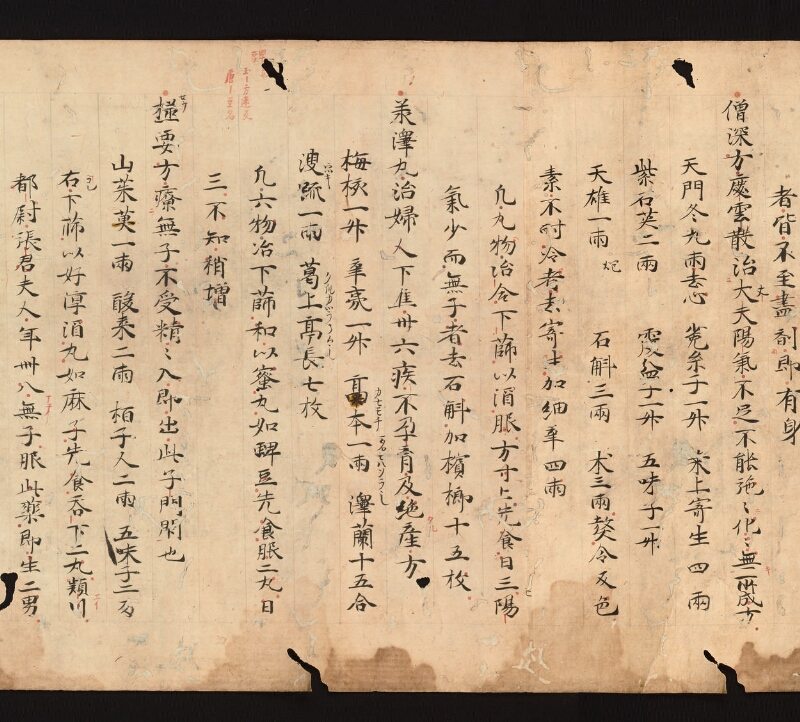 者皆衣至盡劑即有身
僧深方慶雲散治大夫陽氣不足不能施〻化〻無所成方
天門冬九兩去心 菟糸子一升 桒上寄生四兩
紫石英二兩 覆盆子一升 五味子一升
天雄一兩炮 石斛三兩 术三兩熬令反色
素不耐冷者去寄生加細辛四兩
凡九物冶合下篩以酒服方寸匕先食日三陽
氣少而無子者去石斛加檳榔十五枚
承澤丸治婦人下焦卅六疾不孕育及絶產方
梅核一升 辛夷一升 藁本一兩 澤蘭十五合
溲疏一兩 葛上亭長七枚
凡六物冶下篩和以蜜丸如豆先食服二丸日
三不知稍增
極要方療無子不受精〻入即出此子門閇也
山茱萸一兩 酸棗二兩 柏子人二兩 五味子二兩
右下篩以好淳酒丸如麻子先食吞下二丸潁川
都尉張君夫人年卌八無子服此藥即生二男